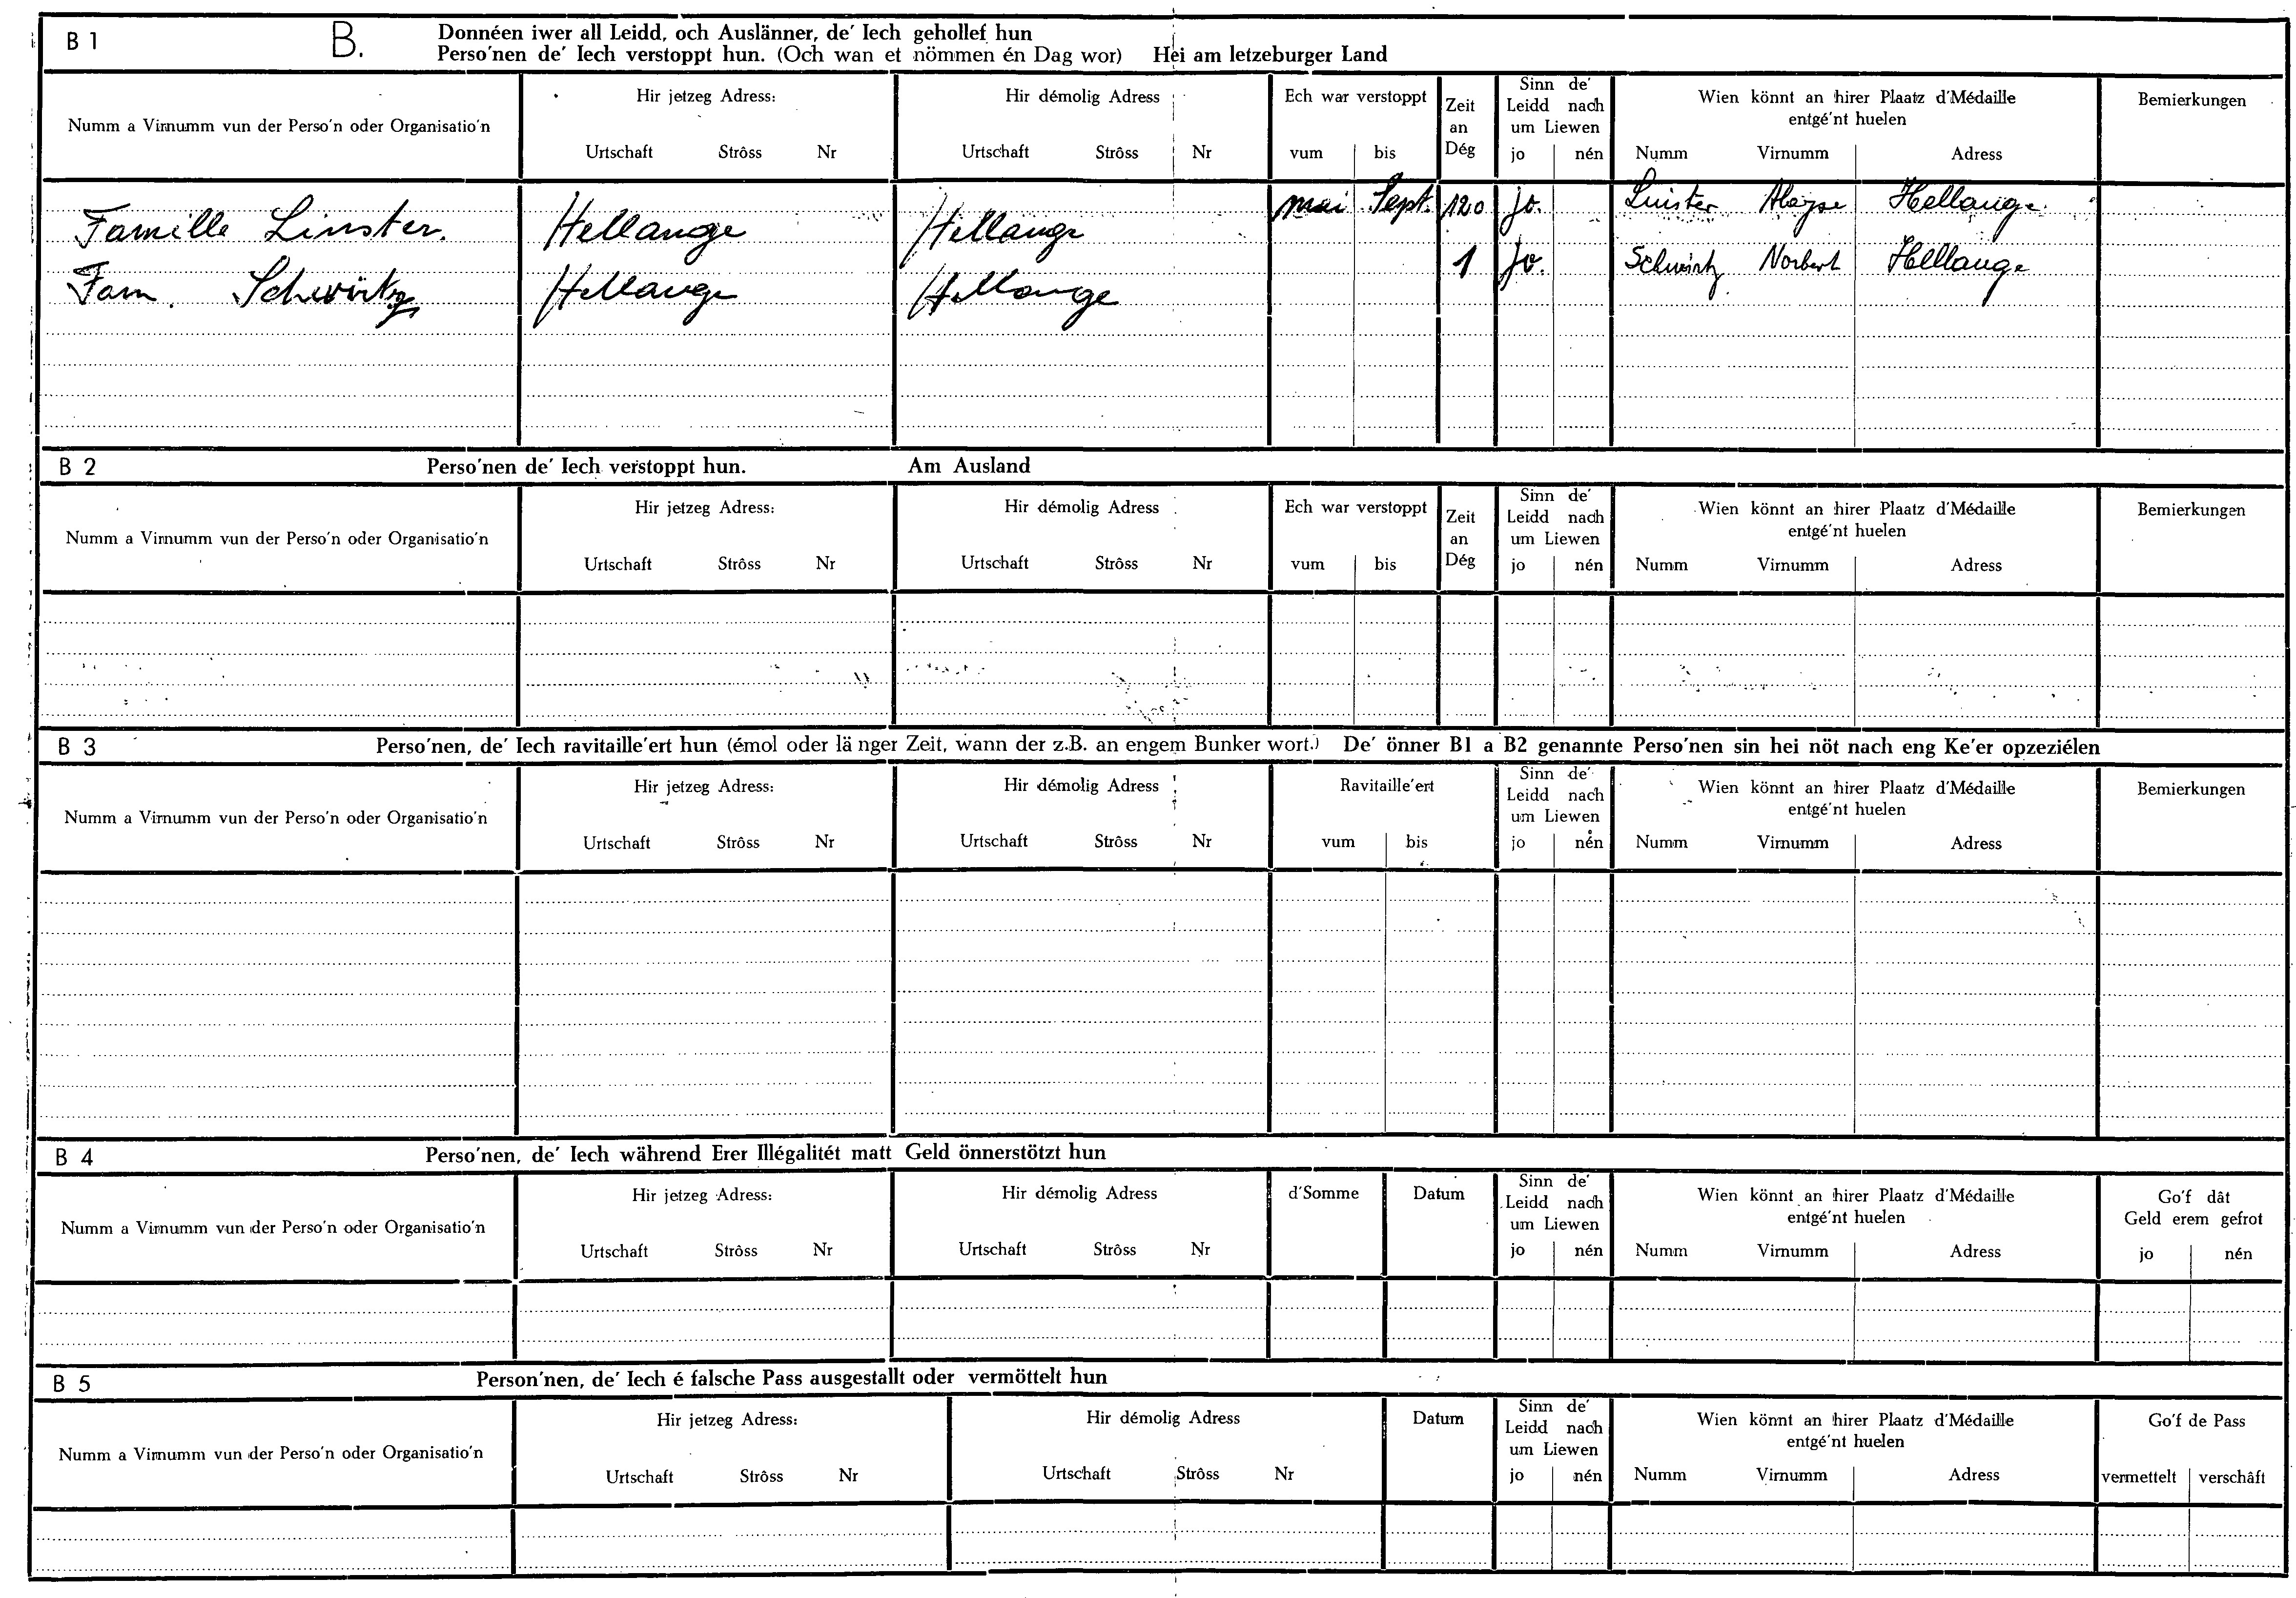 B 1 B. Donnéen iwer all Leidd, och Auslänner, de' Iech gehollef hun
Perso'nen de' Iech verstoppt hun. (Och wan et nömmen én Dag wor) Hei am letzeburger Land
Numm a Virnumm vun der Perso'n oder Organisatio'n
Hir jetzeg Adress:
Urtschaft Strôss Nr
Hir démolig Adress
Urtschaft Strôss Nr
Ech war verstoppt
vum bis
Zeit
an
Dég
Sinn de'
Leidd nach
um Liewen
jo nén
Wien könnt an hirer Plaatz d'Médaille
entgé'nt huelen
Numm Virnumm Adress
Bemierkungen
Famille Linster. Hellange Hellange mai Sept. 120 jo. Linster Aloyse Hellange.
Fam. Schwirtz Hellange Hellange 1 Jo. Schwirtz Norbert Hellange
B 2 Perso'nen de' Iech verstoppt hun. Am Ausland
Numm a Virnumm vun der Perso'n oder Organisatio'n
Hir jetzeg Adress:
Urtschaft Strôss Nr
Hir démolig Adress
Urtschaft Strôss Nr
Ech war verstoppt
vum bis
Zeit
an
Dég
Sinn de'
Leidd nach
um Liewen
jo nén
Wien könnt an hirer Plaatz d'Médaille
entgé'nt huelen
Numm Virnumm Adress
Bemierkungen
B 3 Perso'nen, de' Iech ravitaille'ert hun (émol oder länger Zeit, wann der z.B. an engem Bunker wort.) De' önner B1 a B2 genannte Perso'nen sin hei nöt nach eng Ke'er opzeziélen
Numm a Virnumm vun der Perso'n oder Organisatio'n
Hir jetzeg Adress:
Urtschaft Strôss Nr
Hir démolig Adress
Urtschaft Strôss Nr
Ravitaille'ert
vum bis
Sinn de'
Leidd nach
um Liewen
jo nén
Wien könnt an hirer Plaatz d'Médaille
entgé'nt huelen
Numm Virnumm Adress
Bemierkungen
B 4 Perso'nen, de' Iech während Erer Illégalitét matt Geld önnerstötzt hun
Numm a Virnumm vun der Perso'n oder Organisatio'n
Hir jetzeg Adress:
Urtschaft Strôss Nr
Hir démolig Adress
Urtschaft Strôss Nr
d'Somme
Datum
Sinn de'
Leidd nach
um Liewen
jo nén
Wien könnt an hirer Plaatz d'Médaille
entgé'nt huelen
Numm Virnumm Adress
Go'f dât
Geld erem gefrot
jo nén
B 5 Person'nen, de' Iech é falsche Pass ausgestallt oder vermöttelt hun
Numm a Virnumm vun der Perso'n oder Organisatio'n
Hir jetzeg Adress:
Urtschaft Strôss Nr
Hir démolig Adress
Urtschaft Strôss Nr
Datum
Sinn de'
Leidd nach
um Liewen
jo nén
Wien könnt an hirer Plaatz d'Médaille
entgé'nt huelen
Numm Virnumm Adress
Go'f de Pass
vermettelt verschâft